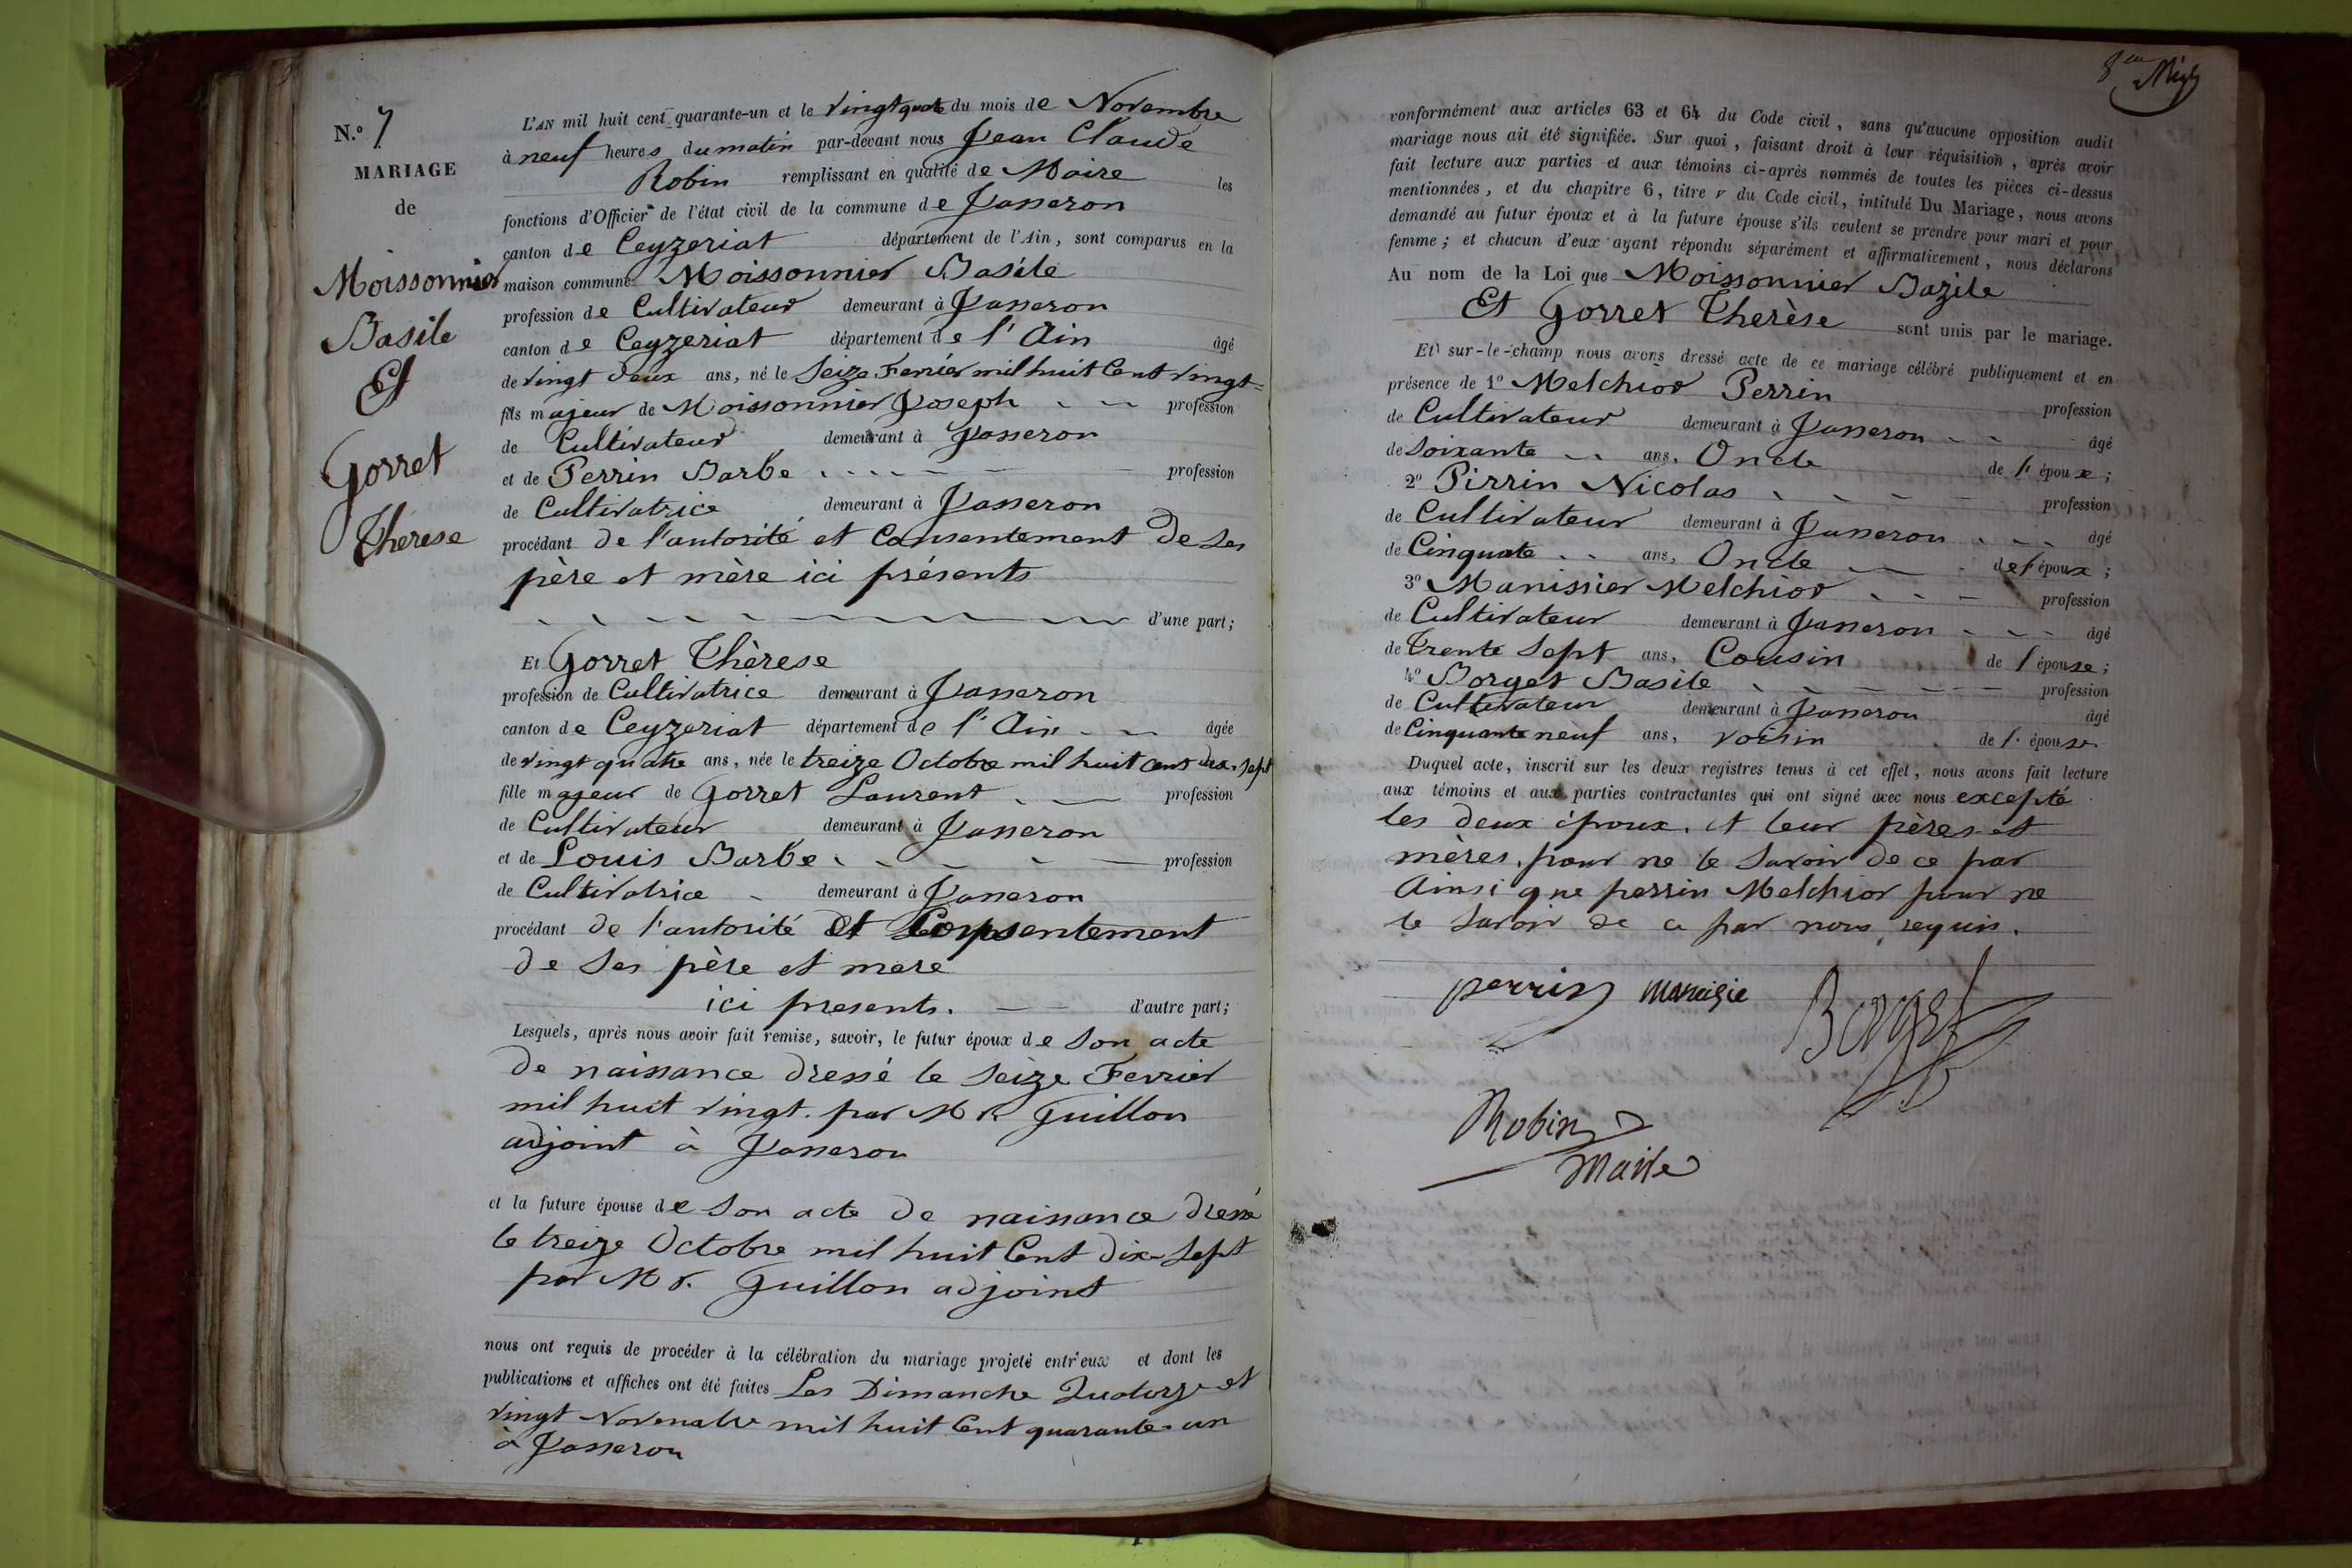 N.º 7
MARIAGE
de
Moissonnier
Basile
Et
Gorret
Thérese
L'AN mil huit cent quarante-un et le vingt quatre du mois de Novembre
à neuf heures du matin par-devant nous Jean Claude
Robin remplissant en qualité de Maire les
fonctions d'Officier de l'état civil de la commune de Jasseron
canton de Ceyzeriat département de l'Ain, sont comparus en la
maison commune Moissonnier Basile
profession de Cultivateur demeurant à Jasseron
canton de Ceyzeriat département de l'Ain âgé
de vingt deux ans, né le Seize Fevrier mil huit Cent vingt=
fils majeur de Moissonnier Joseph profession
de Cultivateur demeurant à Jasseron
et de Perrin Barbe profession
de Cultivatrice demeurant à Jasseron
procédant de l'autorité et Consentement de Ses
père et mère ici présents
d'une part;
Et Gorret Thèrese
profession de Cultivatrice demeurant à Jasseron
canton de Ceyzeriat département de l'Ain âgée
de vingt quatre ans, née le treize Octobre mil huit cent dix-sept
fille majeur de Gorret Laurent profession
de Cultivateur demeurant à Jasseron
et de Louis Barbe profession
de Cultivatrice demeurant à Jasseron
procédant de l'autorité et Consentement
de Ses père et mere
ici presents. d'autre part;
Lesquels, après nous avoir fait remise, savoir, le futur époux de Son acte
de naissance dressé le Seize Fevrier
mil huit vingt. par Mr. Guillon
adjoint à Jasseron
et la future épouse de Son acte de naissance dressé
le treize Octobre mil huit Cent dix-Sept
par Mr. Guillon adjoint
nous ont requis de procéder à la célébration du mariage projeté entr'eux et dont les
publications et affiches ont été faites Les Dimanche Quatorze et
vingt Novembre mil huit Cent quarante-un
à Jasseron
8eme
conformément aux articles 63 et 64 du Code civil, sans qu'aucune opposition audit
mariage nous ait été signifiée. Sur quoi, faisant droit à leur réquisition, après avoir
fait lecture aux parties et aux témoins ci-après nommés de toutes les pièces ci-dessus
mentionnées, et du chapitre 6, titre v du Code civil, intitulé Du Mariage, nous avons
demandé au futur époux et à la future épouse s'ils veulent se prendre pour mari et pour
femme; et chacun d'eux ayant répondu séparément et affirmativement, nous déclarons
Au nom de la Loi que Moissonnier Bazile
Et Gorret Therèse sont unis par le mariage.
Et sur-le-champ nous avons dressé acte de ce mariage célébré publiquement et en
présence de 1º Melchior Perrin profession
de Cultivateur demeurant à Jasseron âgé
de Soixante ans, Oncle de l'époux;
2º Pirrin Nicolas profession
de Cultivateur demeurant à Jasseron âgé
de Cinquate ans, Oncle de l'époux;
3º Manissier Melchior profession
de Cultivateur demeurant à Jasseron âgé
de Trente Sept ans, Cousin de l'épouse;
4º Borget Basile profession
de Cultivateur demeurant à Jasseron âgé
de Cinquante neuf ans, voisin de l'épouse
Duquel acte, inscrit sur les deux registres tenus à cet effet, nous avons fait lecture
aux témoins et aux parties contractantes qui ont signé avec nous excepté
les deux époux. et leur pères et
mères, pour ne le Savoir de ce par
Ainsi que perrin Melchior pour ne
le Savoir de ce par nous requis.
perrin manisie Borget
Robin
Maire